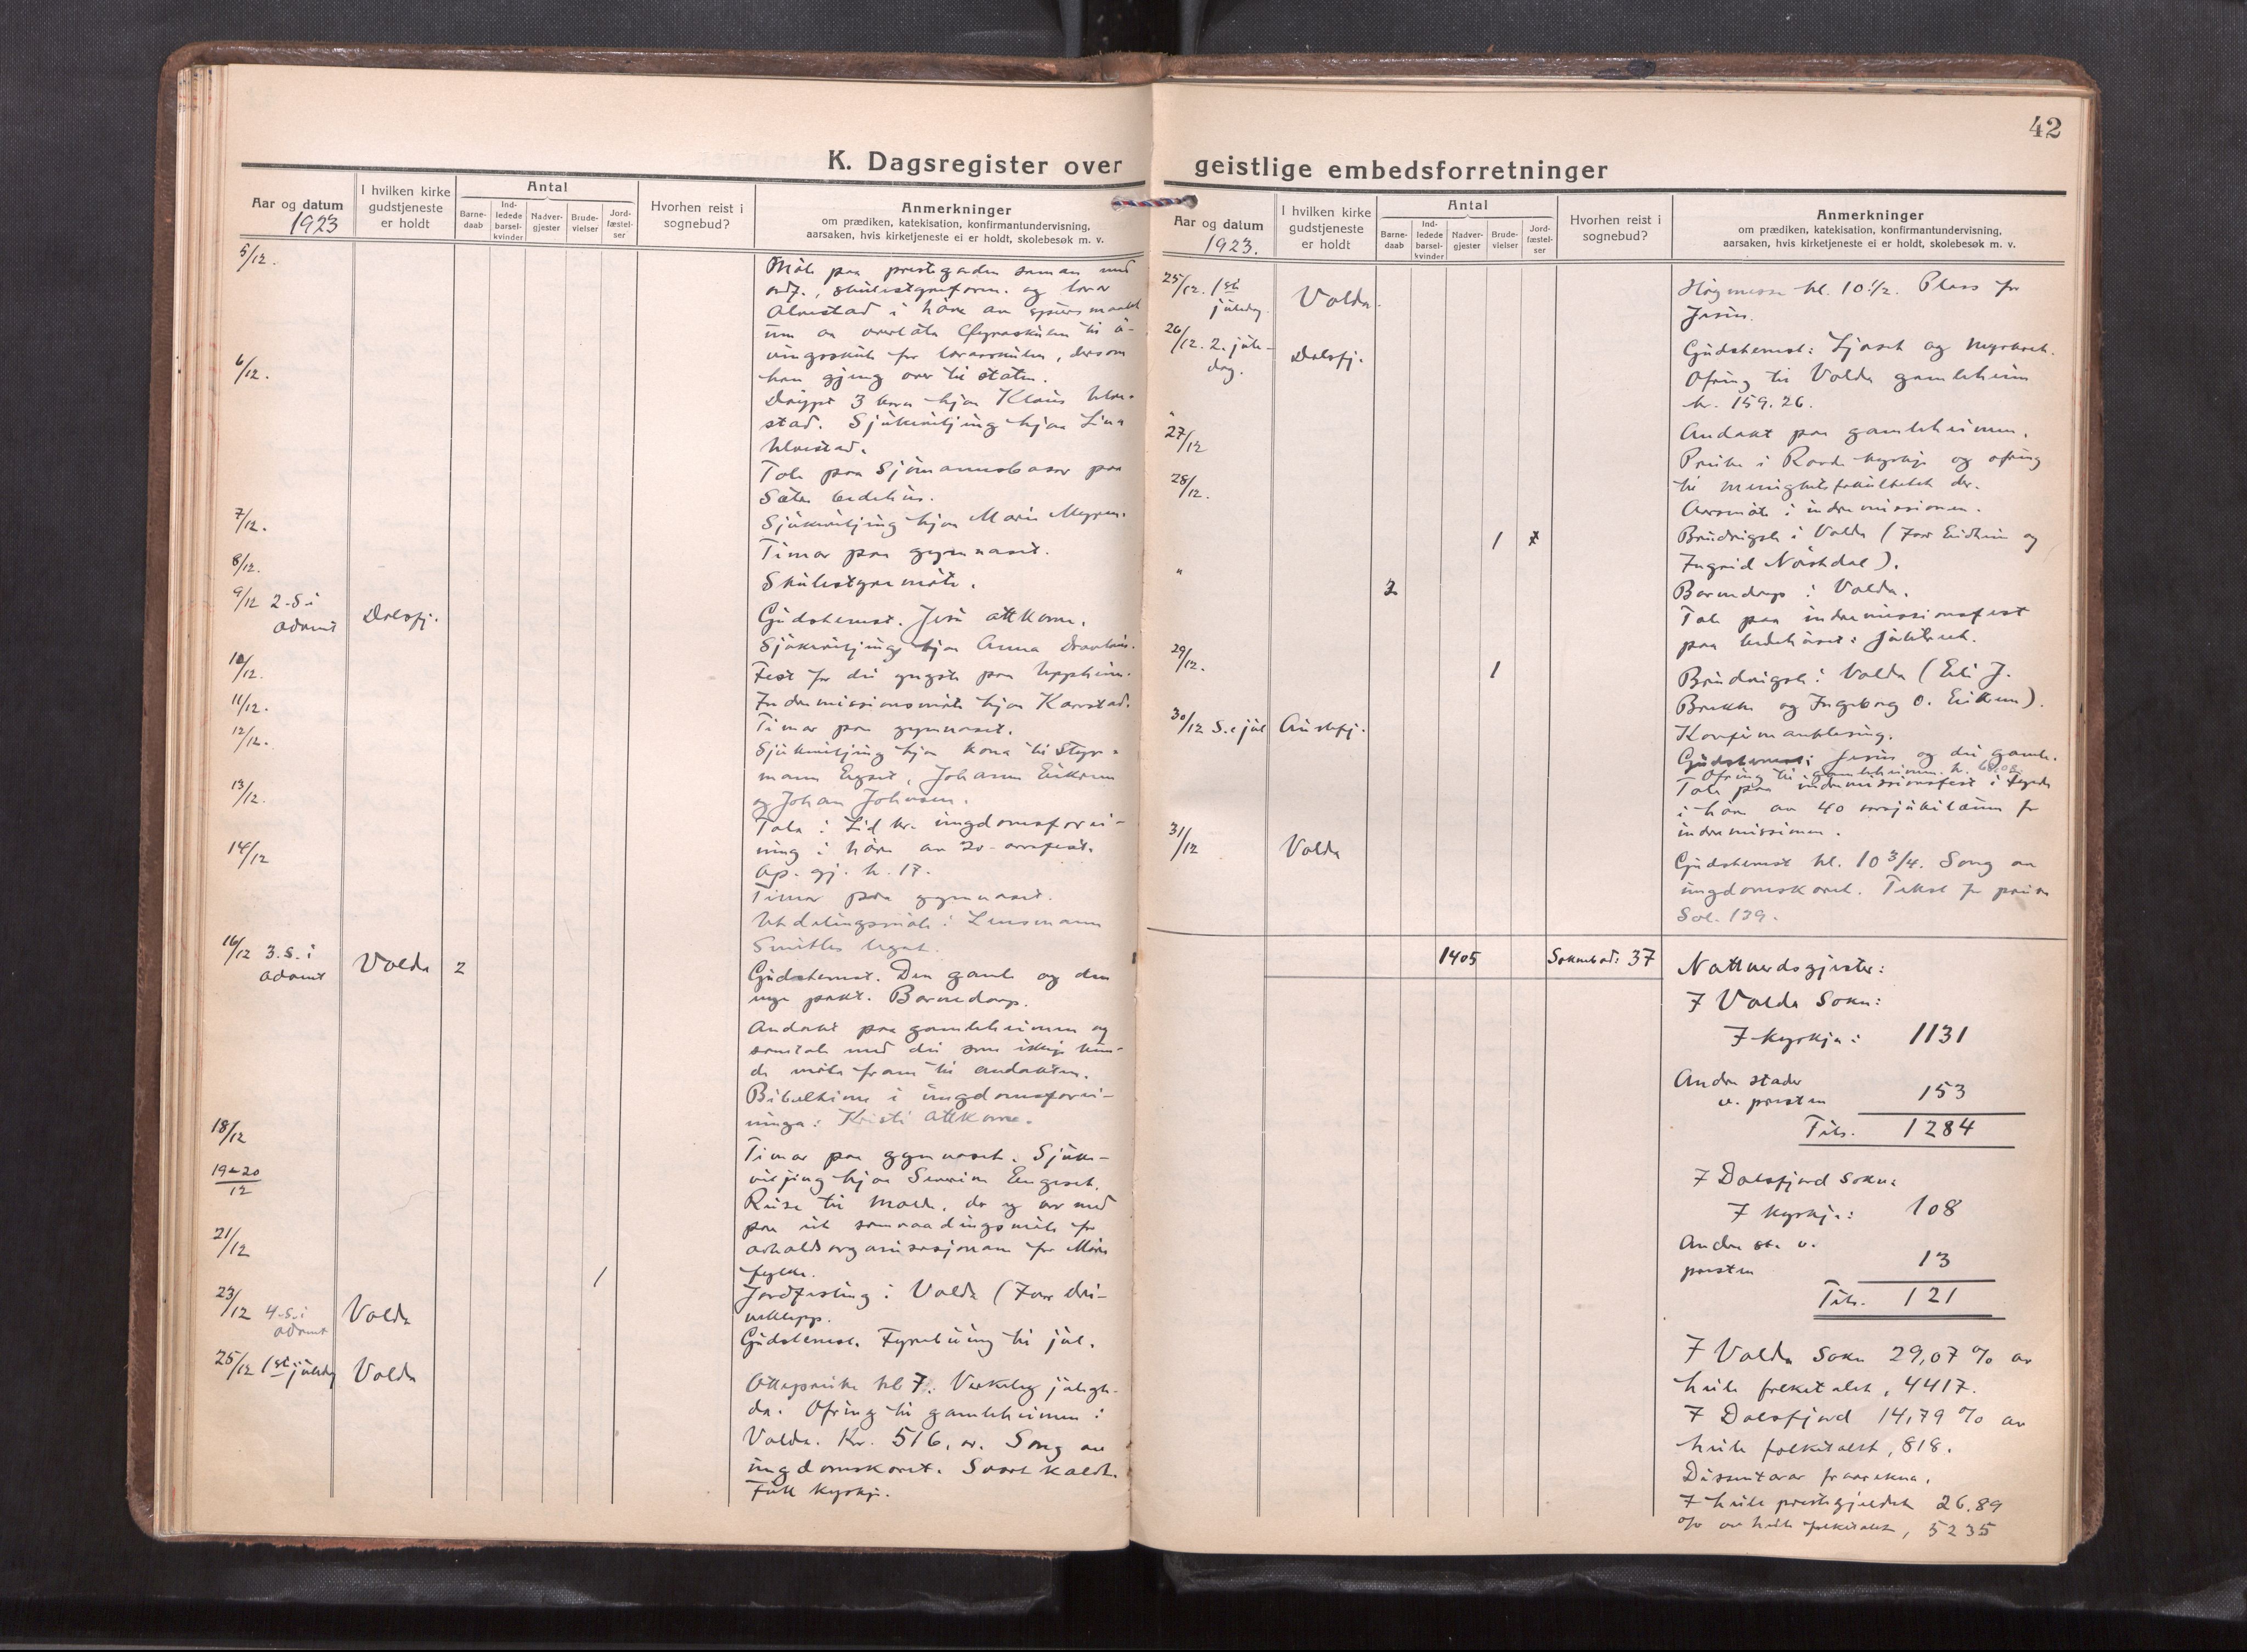 K. Dagsregister over
Aar og datum
1923
I hvilken kirke
gudstjeneste
er holdt
Antal
Barne-
daab
Ind-
ledede
barsel-
kvinder
Nadver-
gjester
Brude-
vielser
Jord-
fæstel-
ser
Hvorhen reist i
sognebud?
Anmerkninger
om prædiken, katekisation, konfirmantundervisning,
aarsaken, hvis kirketjeneste ei er holdt, skolebesøk m. v.
5/12.
Möte paa prestegarden saman med
ordf., skulestyreform. og lærar
Alvestad i höve av spursmaalet
um aa overlata Öyraskulen til ö-
vingsskule for lærarskulen, dersom
han gjeng over til staten.
6/12.
Döypt 3 born hjaa Klaus Ulve-
stad. Sjukevitjing hjaa Lina
Ulvestad.
Tale paa Sjömannsbasar paa
Sæter bedehus.
7/12.
Sjukevitjing hjaa Marie Myren.
Timar paa gymnaset.
8/12.
Skulestyremöte.
9/12 2. S. i
advent
Dalsfj.
Gudstenest. Jesu attkome.
Sjukevitjing hjaa Anna
10/12.
Fest for dei yngste paa Uppheim.
11/12.
Indremissionsmöte hjaa Karstad.
12/12.
Timar paa gymnaset.
Sjukevitjing hjaa kona til Styr-
mann Egset, Johann Eikrem
og Johan Johnsen.
13/12.
Tala i Lid kr. ungdomsforei-
ning i höve av 20-aarsfest.
Ap. gj. k. 17.
14/12
Timar paa gymnaset.
Utdelingsmöte i Lensmann
Smiths legat.
16/12 3. S. i
advent
Volda 2
Gudstenest. Den gamle og den
nye pakt. Barnedaap.
Andakt paa gamleheimen og
samtale med dei som ikkje kun-
de möta fram til andakten.
Bibeltime i ungdomsforei-
ninga: Kristi attkome.
18/12
Timar paa gymnaset. Sjuke-
vitjing hjaa Severin Engeset.
19-20
12
Reise til Molde, der eg var med
paa eit samraadingsmöte for
avhaldsorganisasjonane for Möre
fylke.
21/12
1
Jordfesting i Volda (Ivar Dri-
veklepp.
23/12 4. S. i
advent
Volda
Gudstenest. Fyrebuing til jul.
25/12 1ste juledag
Volda
Ottepreike kl 7. Verkeleg julegle-
da. Ofring til gamleheimen i
Volda. Kr. 516, Song av
ungdomskoret. Svært kaldt.
Full kyrkje.
42
geistlige embedsforretninger
Aar og datum
1923.
I hvilken kirke
gudstjeneste
er holdt
Antal
Barne-
daab
Ind-
ledede
barsel-
kvinder
Nadver-
gjester
Brude-
vielser
Jord-
fæstel-
ser
Hvorhen reist i
sognebud?
Anmerkninger
om prædiken, katekisation, konfirmantundervisning,
aarsaken, hvis kirketjeneste ei er holdt, skolebesøk m. v.
25/12. 1ste
juledag.
Volda.
Högmessa kl. 10 1/2. Plass for
Jesus.
26/12. 2. jule-
dag.
Dalsfj.
Gudstenest: Ljoset og myrkret.
Ofring til Volda gamleheim
kr. 159.26.
"
Andakt paa gamleheimen.
27/12
Preike i Ravde kyrkje og ofring
til menighetsfakultetet der.
28/12.
Aarsmöte i indremissionen.
1
Brudvigsle i Volda (Ivar Eidheim og
Ingrid Nörstdal).
"
3
Barnedaap i Volda.
Tale paa indremissionsfest
paa bedehuset: Jubileet.
29/12.
1
Brudvigsle i Volda (Eli J.
Brekke og Ingeborg O. Eikrem).
Konfirmantlesing.
30/12 S. e jul
Austefj.
Gudstenest: Jesus og dei gamle.
Ofring til gamleheimen. kr. 68.02.
Tale paa indremissionsfest i
i höve av 40 aarsjubilæum for
indremissionen.
31/12
Volda
Gudstenest kl. 10 3/4. Song av
ungdomskoret. Tekst for preika
Sal. 139.
1405
Soknebod: 37
Nattverdsgjester:
I Volda Sokn:
I kyrkja: 1131
Andre stader
v. presten 153
Tils. 1284
I Dalsfjord Sokn:
I kyrkja: 108
Andre st. v.
presten 13
Tils. 121
I Volda Sokn 29,07 % av
heile folketalet, 4417.
I Dalsfjord 14,79 % av
heile folketalet, 818.
Dissentarar fraarekna.
I heile prestegjeldet 26.89
% av heile folketalet, 5235